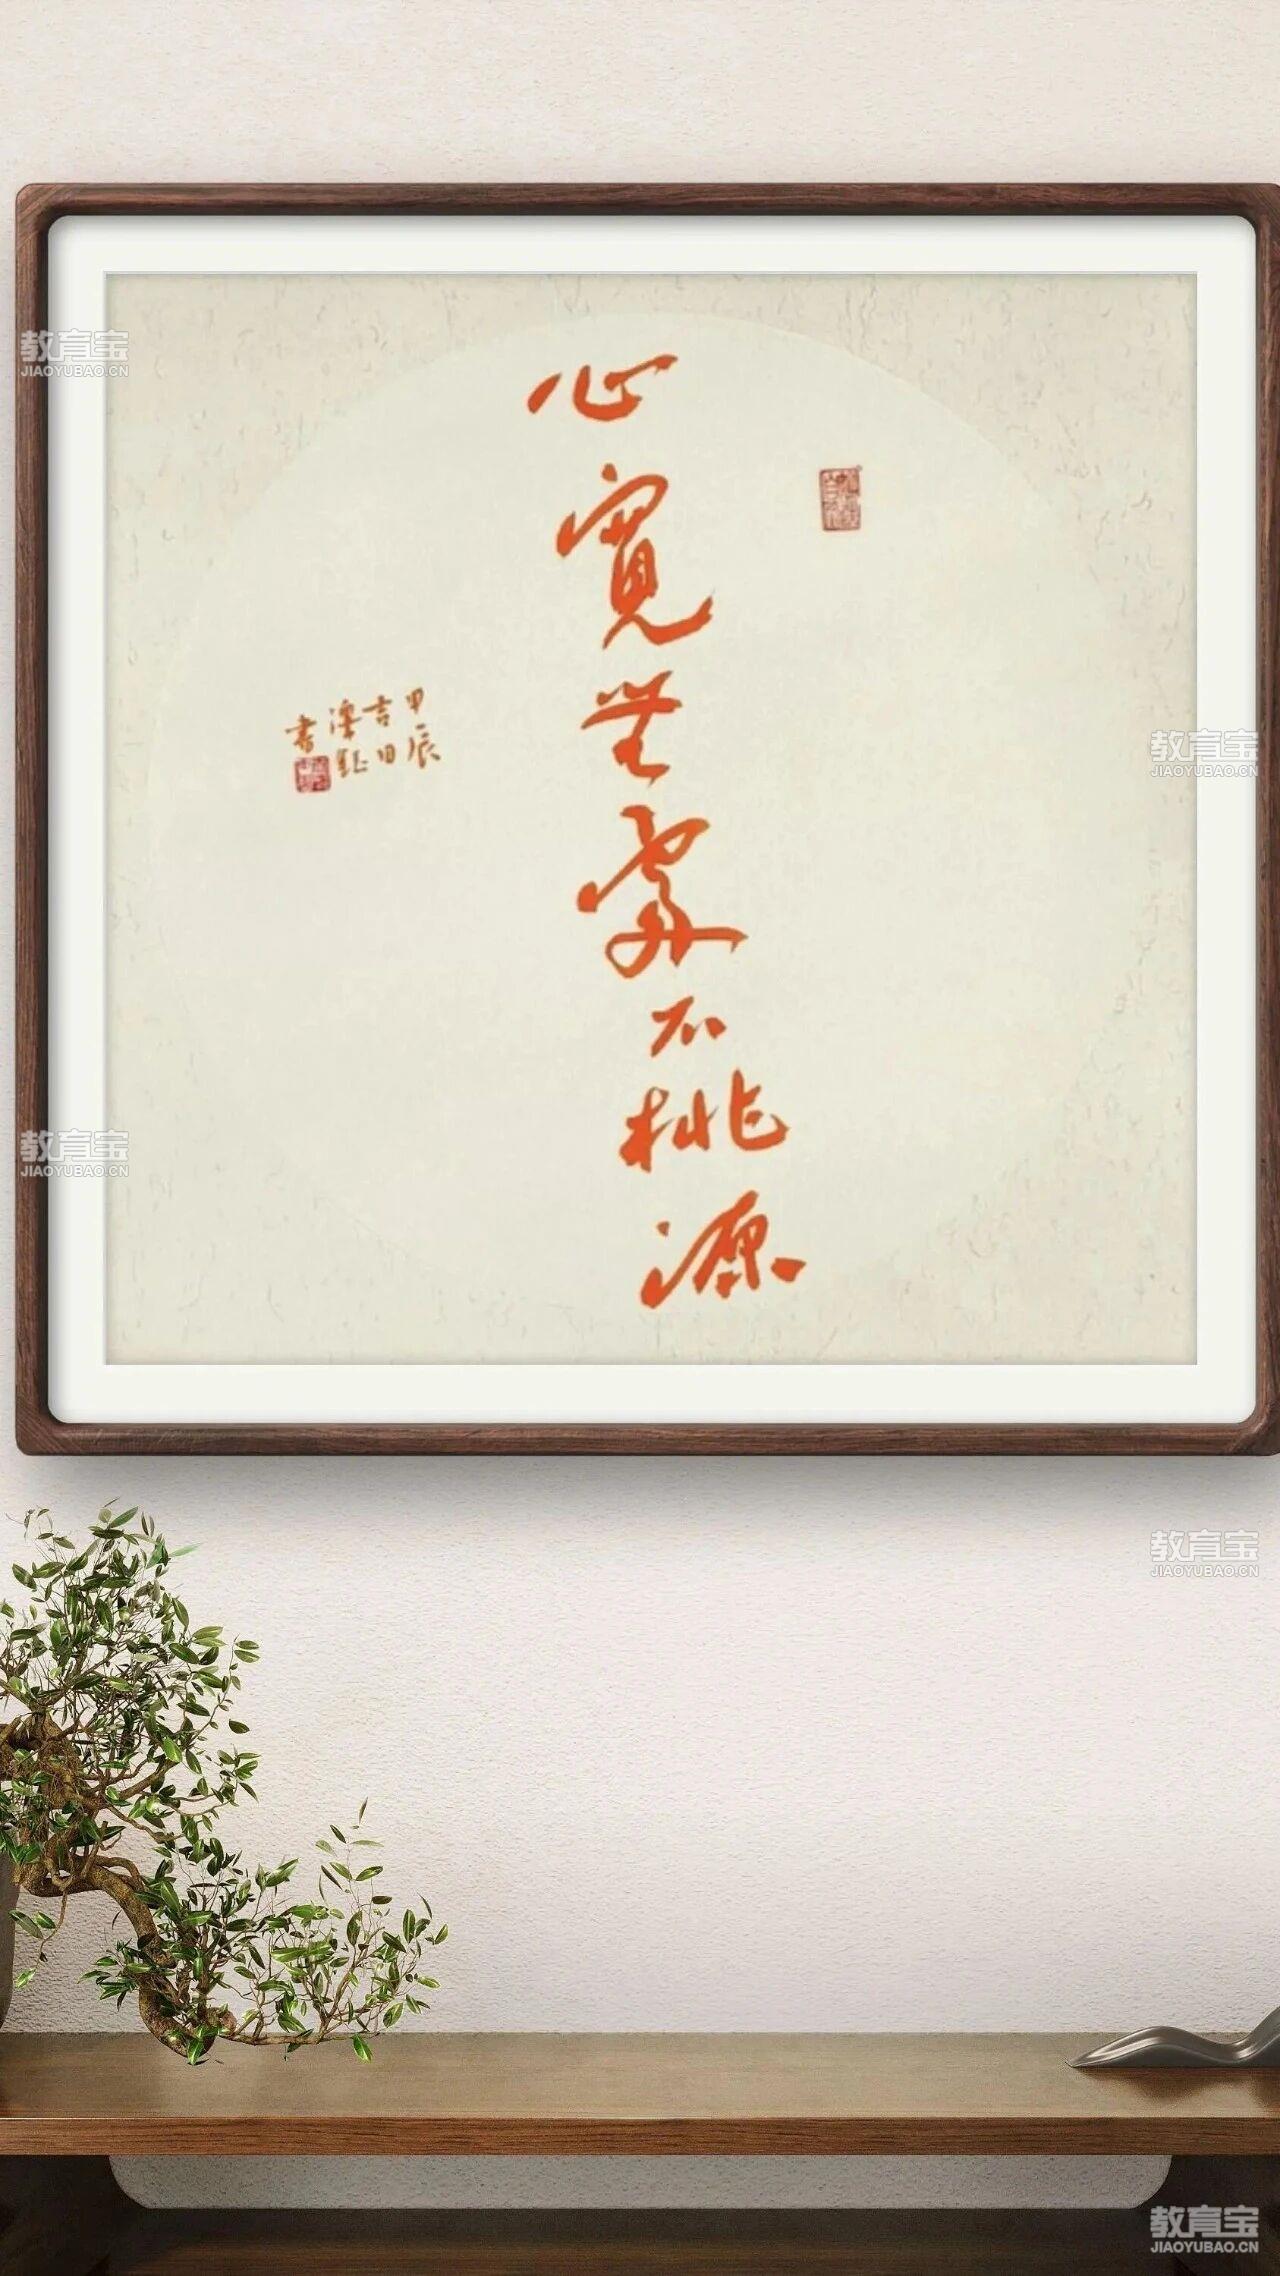 心寬無處不桃源
甲辰
吉日
書
教育宝
JIAOYUBAO.CN
教育宝
JIAOYUBAO.CN
教育宝
JIAOYUBAO.CN
教育宝
JIAOYUBAO.CN
教育宝
JIAOYUBAO.CN